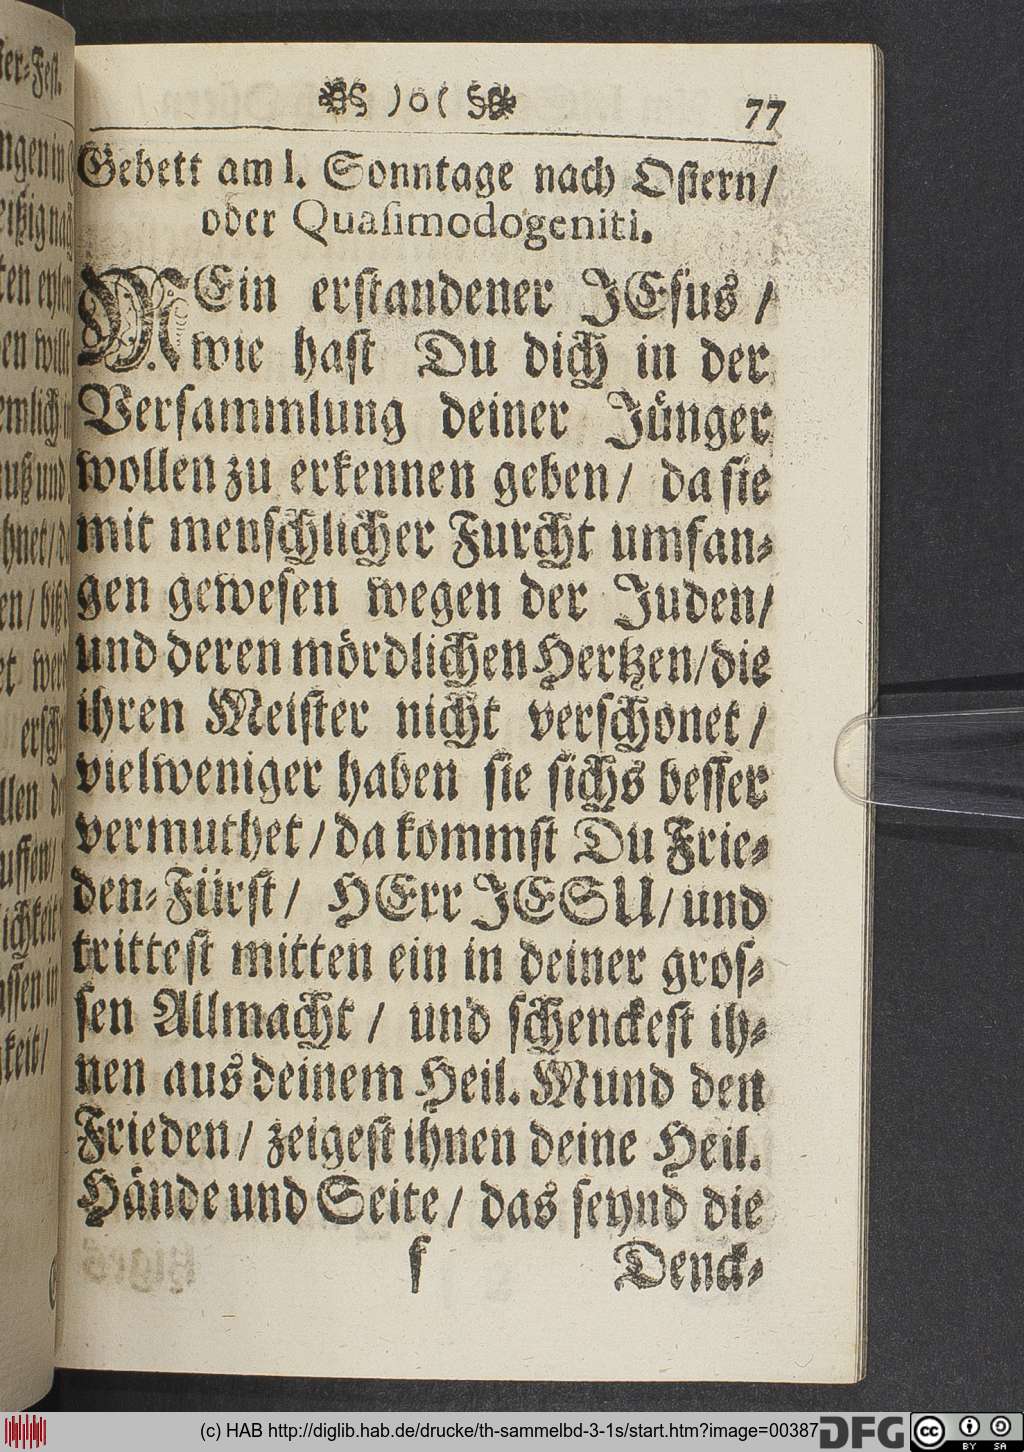 )o( 77
Gebett am I. Sonntage nach Ostern/
oder Quasimodogeniti.
MEin erstandener JEsus /
wie hast Du dich in der
Versammlung deiner Jünger
wollen zu erkennen geben/ da sie
mit menschlicher Furcht umfan-
gen gewesen wegen der Juden/
und deren mördlichen Hertzen/die
ihren Meister nicht verschonet /
vielweniger haben sie sichs besser
vermuthet / da kommst Du Frie-
den-Fürst / HErr JESU / und
trittest mitten ein in deiner gros-
sen Allmacht / und schenckest ih-
nen aus deinem Heil. Mund den
Frieden / zeigest ihnen deine Heil.
Hände und Seite / das seynd die
f Denck-
(c) HAB http://diglib.hab.de/drucke/th-sammelbd-3-1s/start.htm?image=00387
DFG
cc BY SA